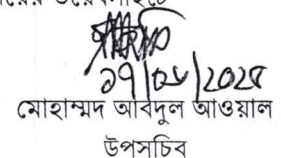 ১৭/০৮/২০২৫
মোহাম্মদ আবদুল আওয়াল
উপসচিব